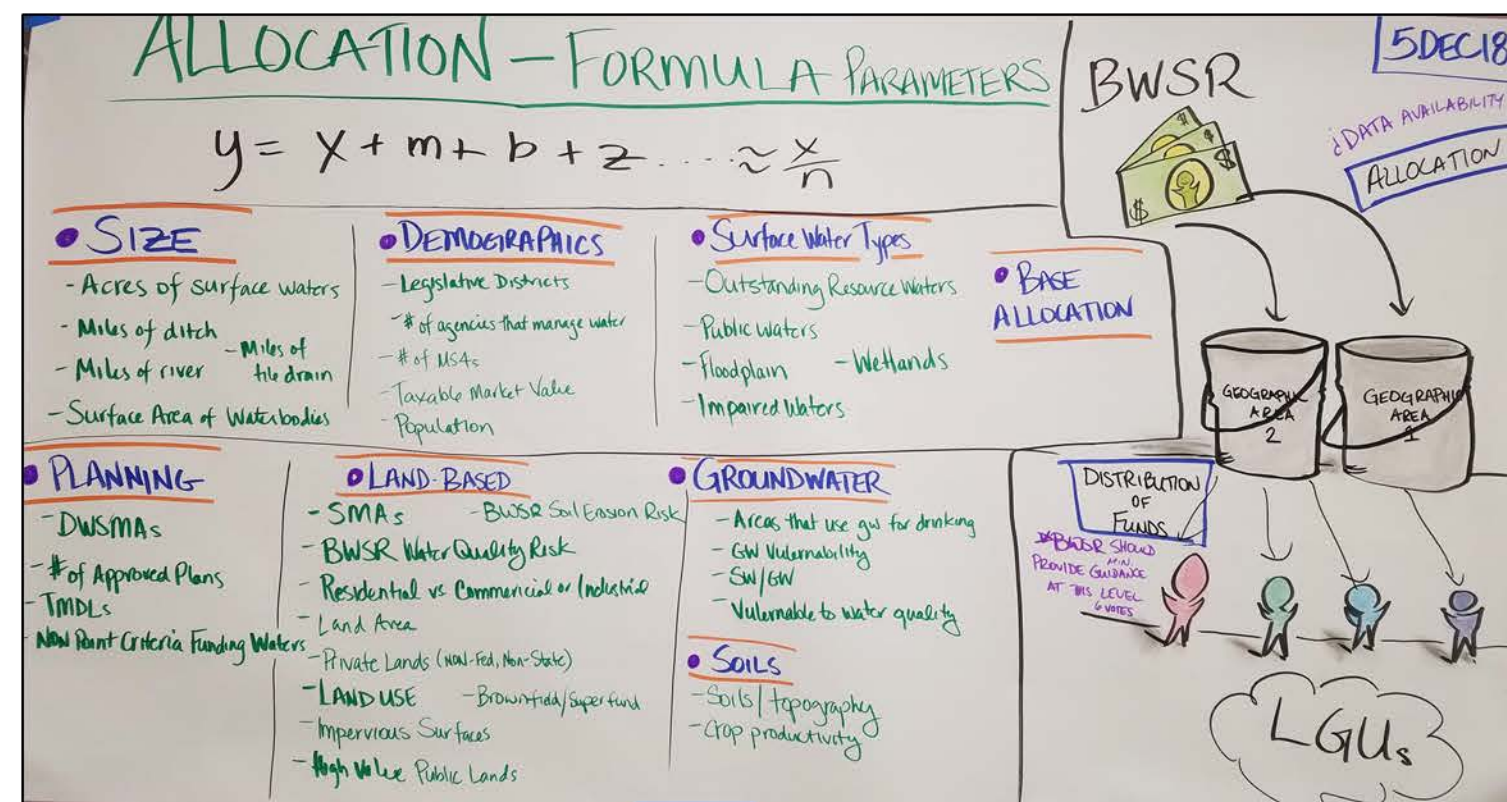 ALLOCATION - FORMULA PARAMETERS
y = x + m + b + z .... ≈ x/n
• SIZE
- Acres of surface waters
- Miles of ditch
- Miles of river
- Miles of
tile drain
- Surface Area of Waterbodies
• DEMOGRAPHICS
- Legislative Districts
- # of agencies that manage water
- # of MS4s
- Taxable Market Value
- Population
• Surface Water Types
- Outstanding Resource Waters
- Public Waters
- Floodplain - Wetlands
- Impaired Waters
• BASE
ALLOCATION
• PLANNING
- DWSMAs
- # of Approved Plans
- TMDLs
- Non Point Criteria Funding Waters
• LAND-BASED
- SMAs - BWSR Soil Erosion Risk
- BWSR Water Quality Risk
- Residential vs Commericial or Industrial
- Land Area
- Private Lands (NON-Fed, Non-State)
- LAND USE - Brownfield/Superfund
- Impervious Surfaces
- High Value Public Lands
• GROUNDWATER
- Areas that use gw for drinking
- GW Vulernability
- SW/GW
- Vulernable to water quality
• SOILS
- Soils/topography
- Crop productivity
BWSR
5DEC18
¿DATA AVAILABILITY
ALLOCATION
$ $ $ $
GEOGRAPHIC
AREA
2
GEOGRAPHIC
AREA
1
DISTRIBUTION
OF
FUNDS
*BWSR SHOULD
MIN.
PROVIDE GUIDANCE
AT THIS LEVEL
6 VOTES
LGUs